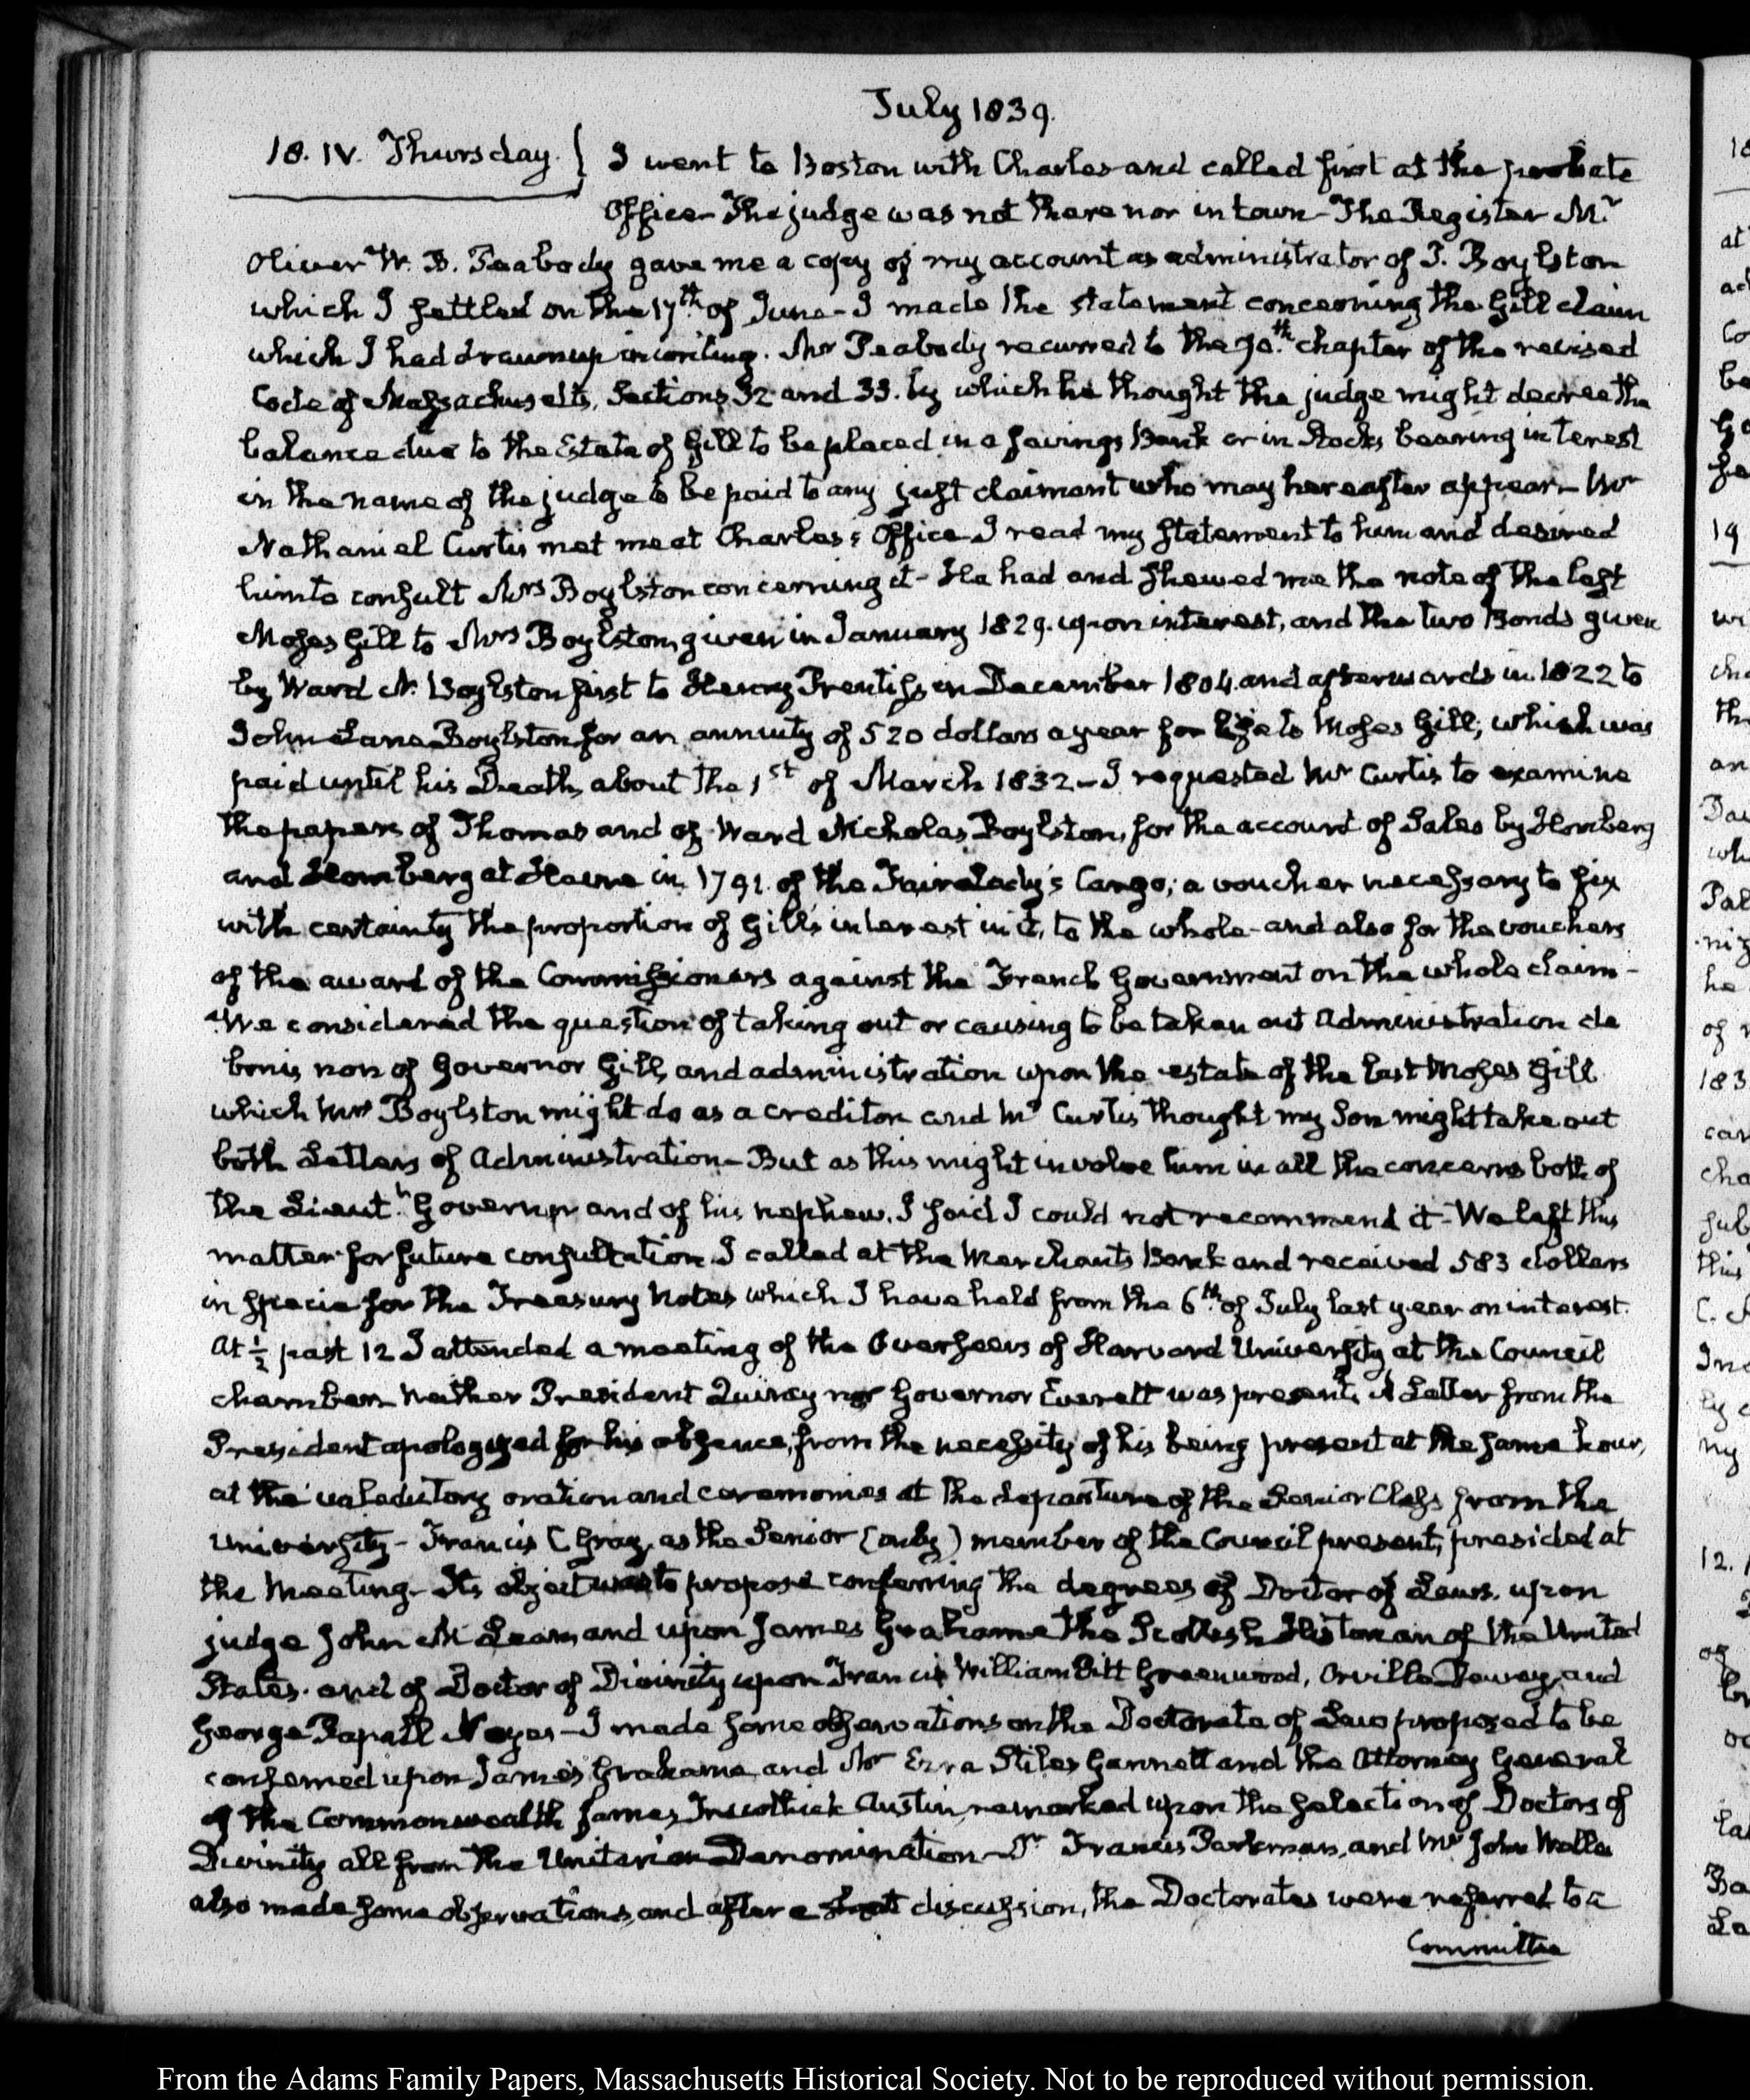 July 1839.
18. IV. Thursday. I went to Boston with Charles and called first at the probate
Office. The judge was not there nor in town - The Register Mr
Oliver W. B. Peabody gave me a copy of my account as administrator of T. Boylston
which I settled on the 17th of June - I made the statement concerning the Gill claim
which I had drawn up in writing. Mr Peabody recurred to the 70th chapter of the revised
Code of Massachusetts, Sections 32 and 33. by which he thought the judge might decree the
balance due to the Estate of Gill to be placed in a Savings Bank or in Stocks bearing interest
in the name of the judge to be paid to any just claimant who may hereafter appear - Mr
Nathaniel Curtis met me at Charles's Office I read my statement to him and desired
him to consult Mrs Boylston concerning it - He had and shewed me the note of the last
Moses Gill to Mrs Boylston, given in January 1829. upon interest, and the two Bonds given
by Ward N. Boylston first to Henry Prentiss in December 1804. and afterwards in 1822 to
John Lane Boylston for an annuity of 520 dollars a year for life to Moses Gill; which was
paid until his Death, about the 1st of March 1832 - I requested Mr Curtis to examine
the papers of Thomas and of Ward Nicholas Boylston, for the account of Sales by Homberg
and Homberg at Havre in 1791. of the Fair Lady's Cargo; a voucher necessary to fix
with certainty the proportion of Gill's interest in it, to the whole - and also for the vouchers
of the award of the Commissioners against the French Government on the whole claim -
We considered the question of taking out or causing to be taken out Administration de
bonis non of Governor Gill, and administration upon the estate of the last Moses Gill
which Mrs Boylston might do as a creditor and Mr Curtis thought my Son might take out
both Letters of Administration - But as this might involve him in all the concerns both of
the Lieutt Governor and of his nephew. I said I could not recommend it - We left this
matter for future consultation. I called at the Merchants Bank and received 583 dollars
in specie for the Treasury Notes which I have held from the 6th of July last year on interest.
At ½ past 12 I attended a meeting of the Overseers of Harvard University at the Council
chamber. Neither President Quincy nor Governor Everett was present, A Letter from the
President apologized for his absence, from the necessity of his being present at the same hour,
at the valedictory oration and ceremonies at the departure of the Senior Class from the
University - Francis C Gray, as the Senior (only) member of the Council present, presided at
the Meeting - Its object was to propose conferring the degrees of Doctor of Laws. upon
judge John McLean, and upon James Grahame the Scottish Historian of the United
States. and of Doctor of Divinity upon Francis William Pitt Greenwood, Orville Dewey, and
George Rapall Noyes - I made some observations on the Doctorate of Laws proposed to be
conferred upon James Grahame, and Mr Ezra Stiles Gannett and the Attorney General
of the Commonwealth James Trecothick Austin, remarked upon the selection of Doctors of
Divinity all from the Unitarian Denomination - Dr Francis Parkman, and Mr John Welles
also made some observations, and after a short discussion, the Doctorates were referred to a
Committee
From the Adams Family Papers, Massachusetts Historical Society. Not to be reproduced without permission.